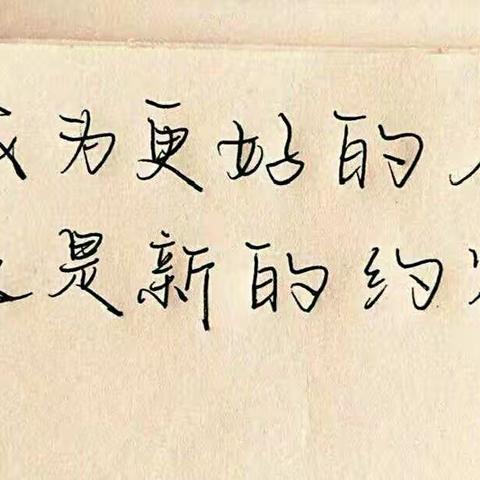 成为更好的
是新的约